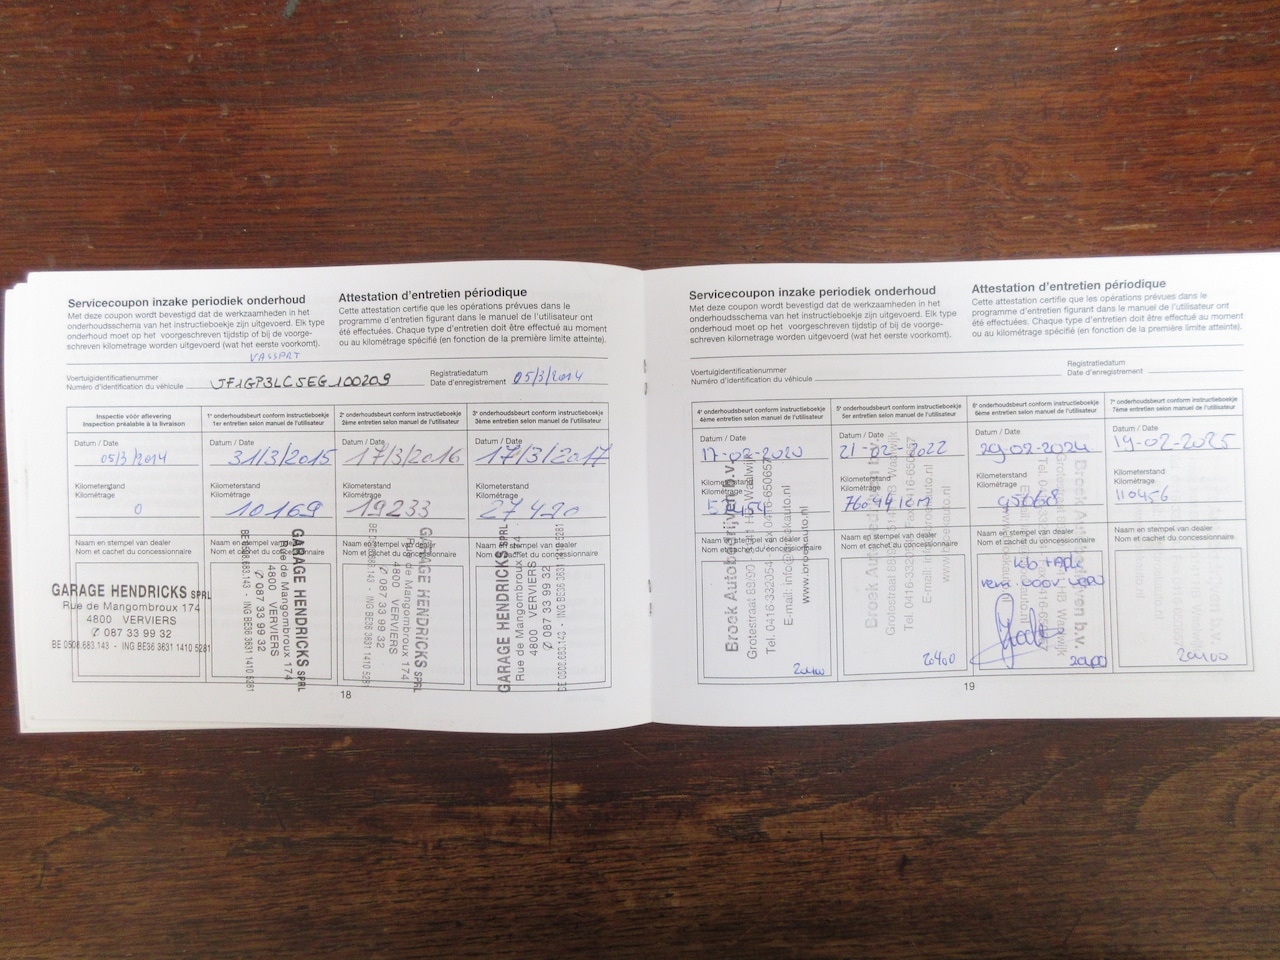 Servicecoupon inzake periodiek onderhoud
Met deze coupon wordt bevestigd dat de werkzaamheden in het
onderhoudsschema van het instructieboekje zijn uitgevoerd. Elk type
onderhoud moet op het voorgeschreven tijdstip of bij de voorge-
schreven kilometrage worden uitgevoerd (wat het eerste voorkomt).
Attestation d'entretien périodique
Cette attestation certifie que les opérations prévues dans le
programme d'entretien figurant dans le manuel de l'utilisateur ont
été effectuées. Chaque type d'entretien doit être effectué au moment
ou au kilométrage spécifié (en fonction de la première limite atteinte).
Voertuigidentificatienummer
Numéro d'identification du véhicule JF1GP3LC5EG 100209
Registratiedatum
Date d'enregistrement 05/3/2014
Inspectie vóór aflevering
Inspection préalable à la livraison
Datum / Date
05/3/2014
Kilometerstand
Kilométrage
0
Naam en stempel van dealer
Nom et cachet du concessionnaire
GARAGE HENDRICKS SPRL
Rue de Mangombroux 174
4800 VERVIERS
✆ 087 33 99 32
BE 0508.683.143 - ING BE36 3631 1410 5281
1e onderhoudsbeurt conform instructieboekje
1er entretien selon manuel de l'utilisateur
Datum / Date
31/3/2015
Kilometerstand
Kilométrage
10169
Naam en stempel van dealer
Nom et cachet du concessionnaire
GARAGE HENDRICKS SPRL
Rue de Mangombroux 174
4800 VERVIERS
✆ 087 33 99 32
BE 0508.683.143 - ING BE36 3631 1410 5281
2e onderhoudsbeurt conform instructieboekje
2ème entretien selon manuel de l'utilisateur
Datum / Date
17/3/2016
Kilometerstand
Kilométrage
19233
Naam en stempel van dealer
Nom et cachet du concessionnaire
GARAGE HENDRICKS SPRL
Rue de Mangombroux 174
4800 VERVIERS
✆ 087 33 99 32
3e onderhoudsbeurt conform instructieboekje
3ème entretien selon manuel de l'utilisateur
Datum / Date
17/3/2017
Kilometerstand
Kilométrage
27420
Naam en stempel van dealer
Nom et cachet du concessionnaire
GARAGE HENDRICKS SPRL
Rue de Mangombroux 174
4800 VERVIERS
✆ 087 33 99 32
BE 0508.683.143 - ING BE36 3631 1410 5281
18
Servicecoupon inzake periodiek onderhoud
Met deze coupon wordt bevestigd dat de werkzaamheden in het
onderhoudsschema van het instructieboekje zijn uitgevoerd. Elk type
onderhoud moet op het voorgeschreven tijdstip of bij de voorge-
schreven kilometrage worden uitgevoerd (wat het eerste voorkomt).
Attestation d'entretien périodique
Cette attestation certifie que les opérations prévues dans le
programme d'entretien figurant dans le manuel de l'utilisateur ont
été effectuées. Chaque type d'entretien doit être effectué au moment
ou au kilométrage spécifié (en fonction de la première limite atteinte).
Voertuigidentificatienummer
Numéro d'identification du véhicule
Registratiedatum
Date d'enregistrement
4e onderhoudsbeurt conform instructieboekje
4ème entretien selon manuel de l'utilisateur
Datum / Date
17-02-2020
Kilometerstand
Kilométrage
Naam en stempel van dealer
Nom et cachet du concessionnaire
Broek Autobedrijven b.v.
Grotestraat 88/90
Tel. 0416-332054
www.broekauto.nl
5e onderhoudsbeurt conform instructieboekje
5ème entretien selon manuel de l'utilisateur
Datum / Date
21-02-2022
Kilometerstand
Kilométrage
Naam en stempel van dealer
Nom et cachet du concessionnaire
6e onderhoudsbeurt conform instructieboekje
6ème entretien selon manuel de l'utilisateur
Datum / Date
29-02-2024
Kilometerstand
Kilométrage
95668
Naam en stempel van dealer
Nom et cachet du concessionnaire
7e onderhoudsbeurt conform instructieboekje
7ème entretien selon manuel de l'utilisateur
Datum / Date
19-02-2025
Kilometerstand
Kilométrage
110456
Naam en stempel van dealer
Nom et cachet du concessionnaire
19